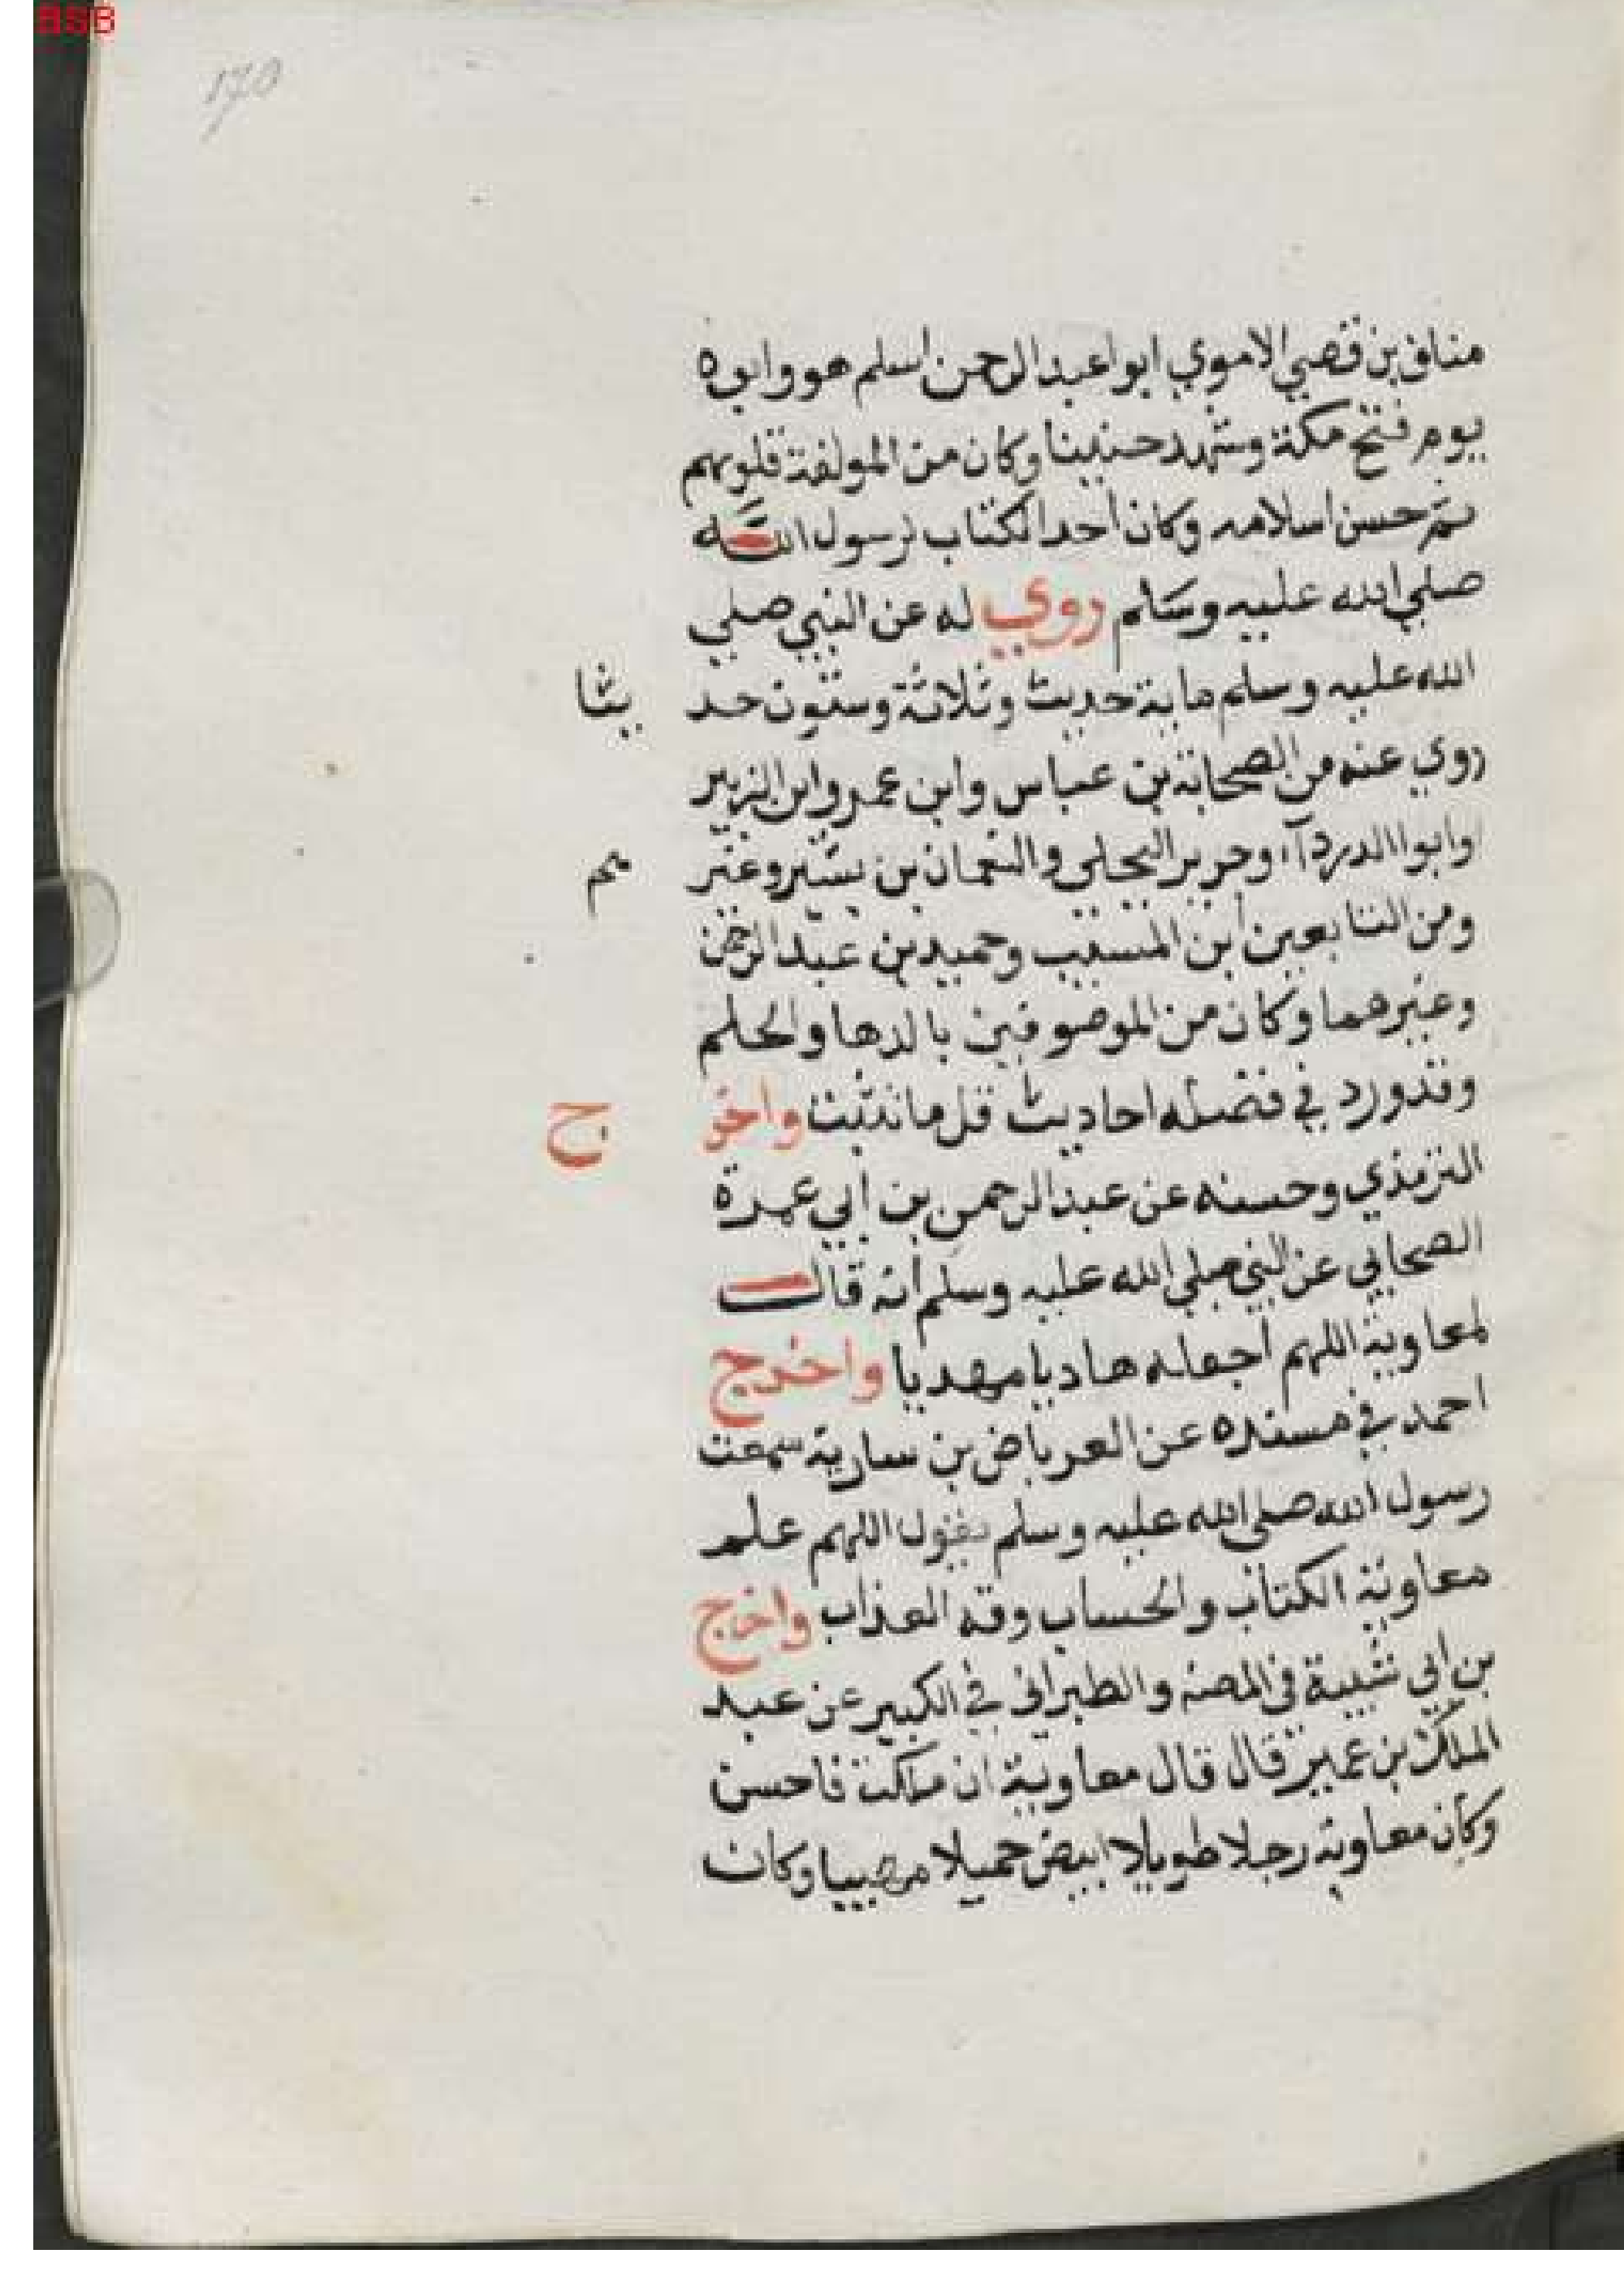 BSB
170
مناف بن قصي الاموي ابوا عبد الرحمن اسلم هو وابوه
يوم فتح مكة وشهد حنينا وكان من المولفة قلوبهم
ثم حسن اسلامه وكان احد الكتاب لرسول الله
صلي الله عليه وسلم روي له عن النبي صلي
الله عليه وسلم ماية حديث وثلاثة وستون حد يثا
روي عنه من الصحابة بن عباس وابن عمر وابن الزبير
وابوا الدردآء وجرير البجلي والنعمان بن بشير وغير هم
ومن التابعين ابن المسيب وحميد بن عبد الرحمن
وغيرهما وكان من الموصوفين بالدها والحلم
وقد ورد في فضله احاديث قل ما تثبت واخر ج
الترمذي وحسنه عن عبد الرحمن بن ابي عمرة
الصحابي عن النبي صلي الله عليه وسلم انه قال
لمعاوية اللهم اجعله هاديا مهديا واخرج
احمد في مسنده عن العرباض بن سارية سمعت
رسول الله صلى الله عليه وسلم يقول اللهم علم
معاوية الكتاب والحساب وقه العذاب واخرج
بن ابي شيبة في المصنف والطبراني في الكبير عن عبد
الملك بن عمير قال قال معاوية ان ملكت فاحسن
وكان معاوية رجلا طويلا ابيض جميلا مهيبا وكان